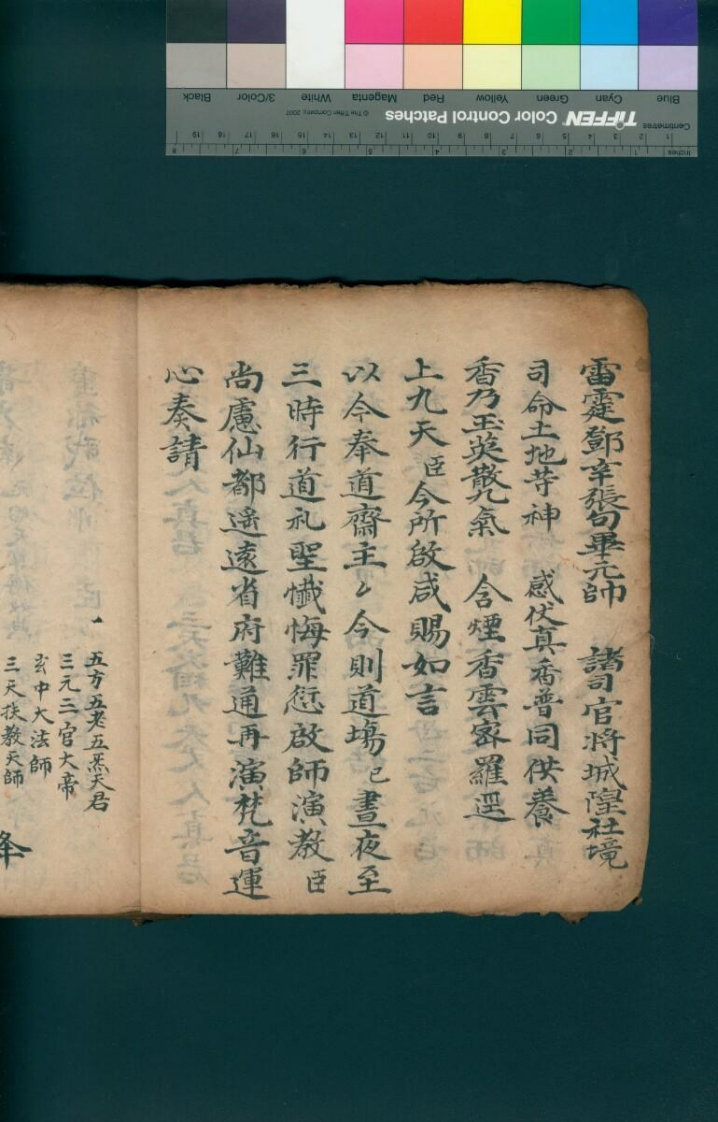 雷霆鄧辛張勾畢元帥　諸司官將城隍社境
司命土地䓁神　感伏真香普同供養
香乃玉英散九氣　含煙香雲密羅逕
上九天臣今所啟咸賜如言
以今奉道齋主〻今則道塲已晝夜至
三時行道礼聖懺悔罪愆啟師演教臣
尚慮仙都遥遠省府難通再演梵音運
心奏請
五方五老五炁天君
三元三官大帝
玄中大法師
三天扶教天師
TIFFEN Color Control Patches
© The Tiffen Company, 2007
Blue Cyan Green Yellow Red Magenta White 3/Color Black
Centimetres
Inches